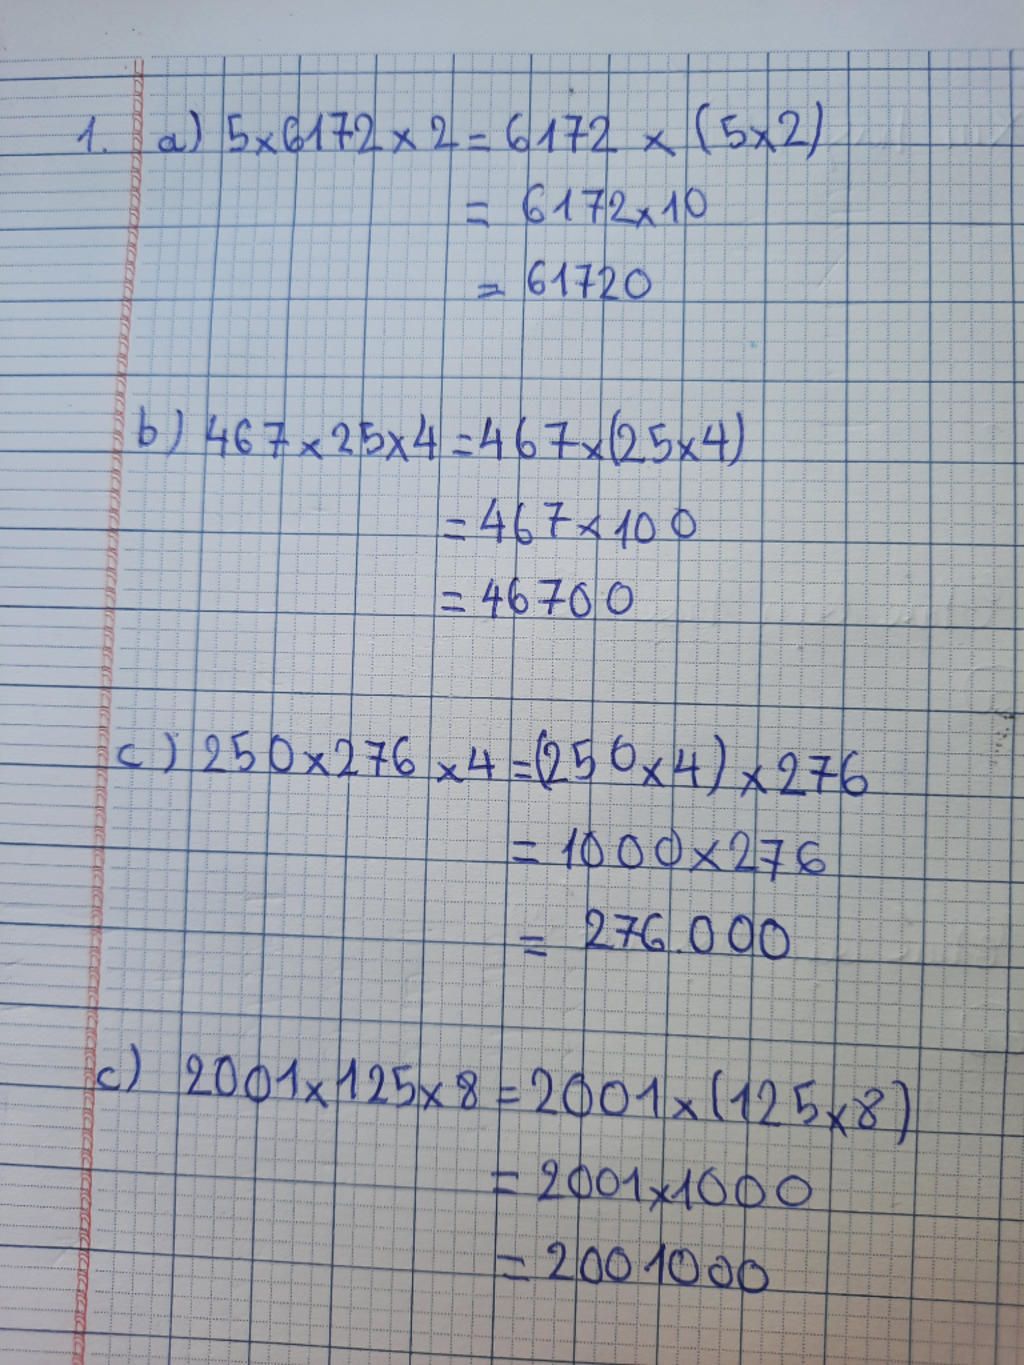 1. a) 5x6172 x 2 = 6172 x (5x2)
= 6172x10
= 61720
b) 467 x 25x4 = 467 x (25x4)
= 467 x 100
= 46700
c) 250x276 x4 = (250x4) x 276
= 1000x276
= 276.000
c) 2001x125x8 = 2001x(125x8)
= 2001x1000
= 2001000